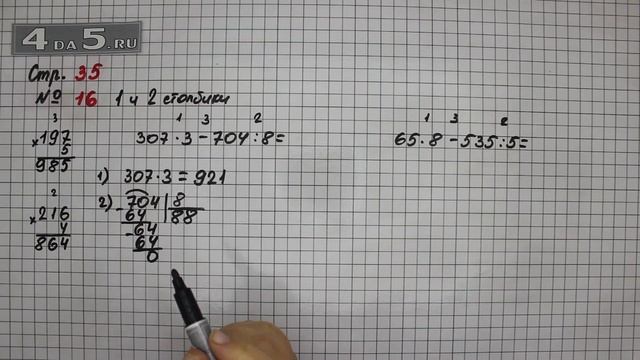 4 DA 5.RU
Стр. 35
№ 16 1 и 2 столбики
3
× 197
5
985
2
× 216
4
864
1 3 2
307 · 3 - 704 : 8 =
1) 307 · 3 = 921
2) - 704 | 8
64 88
- 64
64
0
1 3 2
65 · 8 - 535 : 5 =